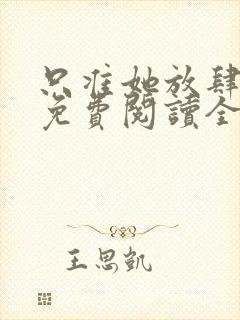 只准她放肆
免費閱讀全
王思凱